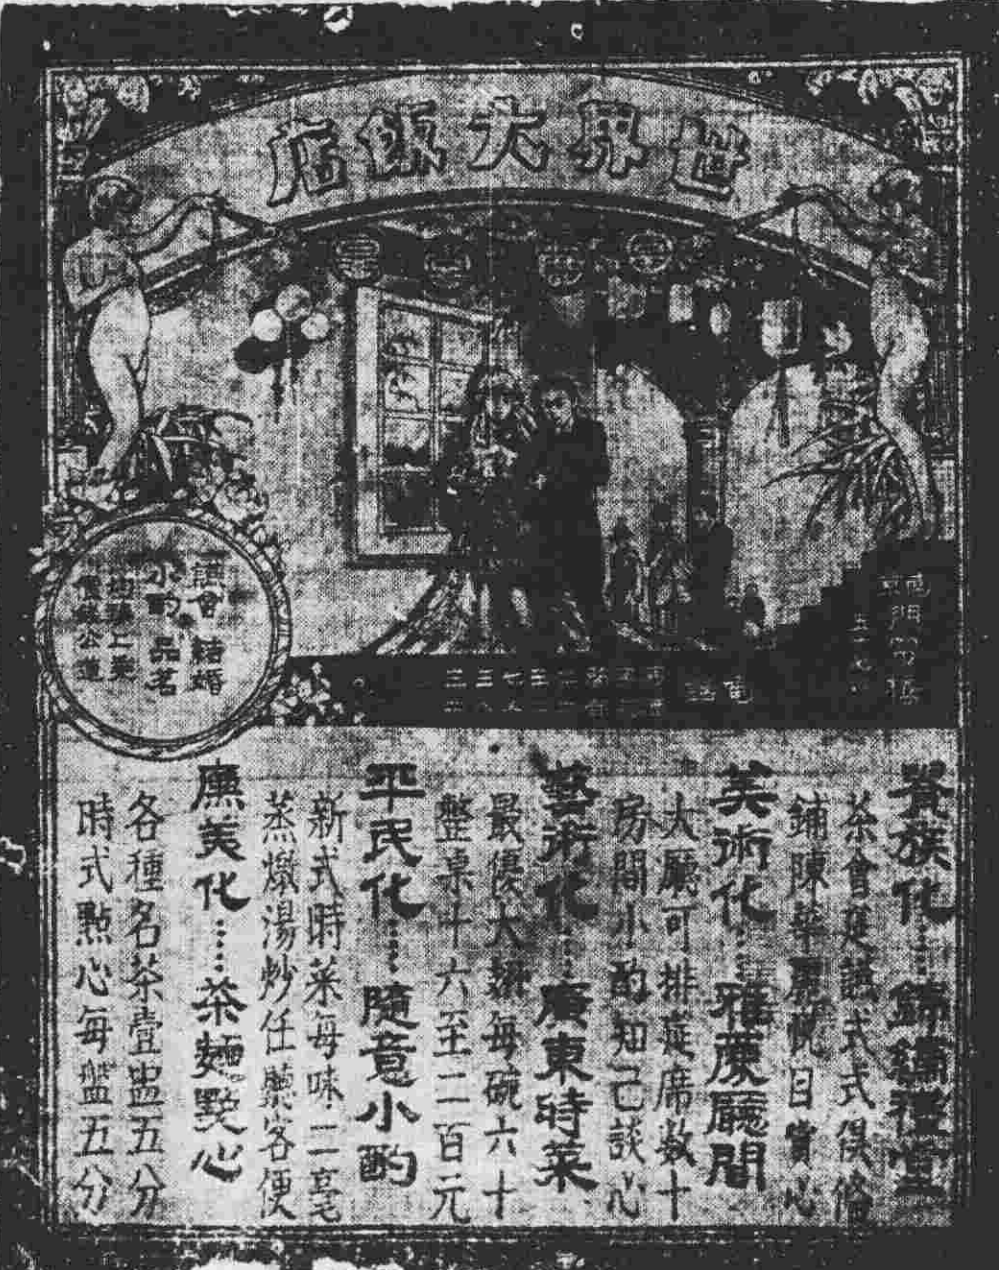 世界大飯店
讌會 結婚
小酌 品茗
價錢公道
電話
貴族化……錦繡禮堂
茶會筵讌式式俱備
鋪陳華麗悅目賞心
美術化……雅麗廳間
大廳可排筵席數十
房間小酌知己談心
藝術化……廣東時菜
最優大翅每碗六十
整桌十六至二百元
平民化……隨意小酌
新式時菜每味二毫
蒸燉湯炒任聽客便
廉美化……茶麵點心
各種名茶壹盅五分
時式點心每盤五分